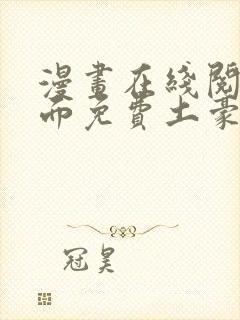 漫畫在綫閱
而免費土豪
冠昊